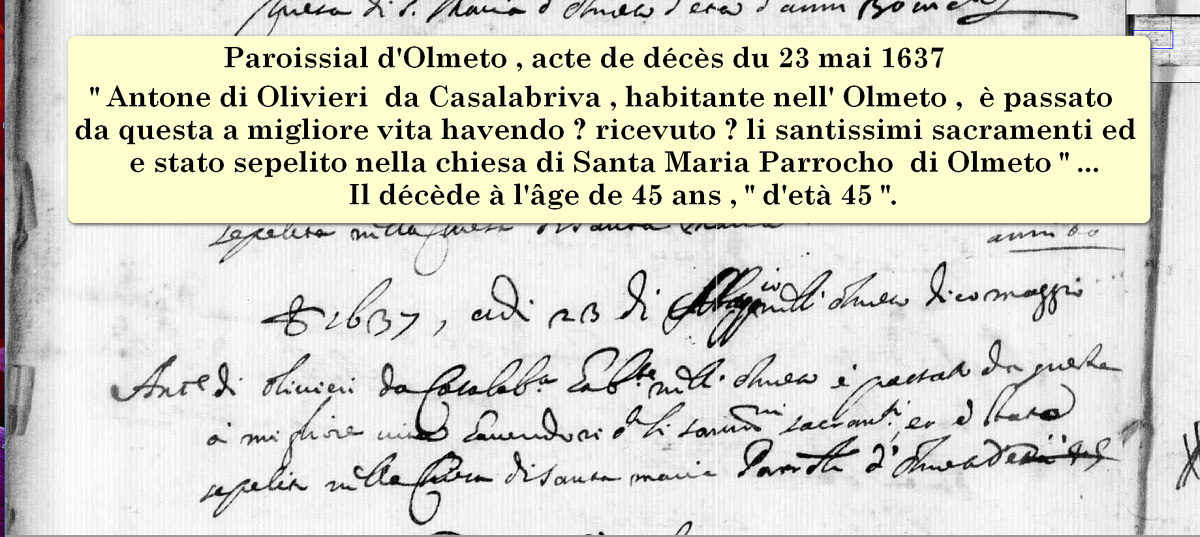 questa di S. Maria d'olmeto d'eta d'anni
Paroissial d'Olmeto , acte de décès du 23 mai 1637
" Antone di Olivieri da Casalabriva , habitante nell' Olmeto , è passato
da questa a migliore vita havendo ? ricevuto ? li santissimi sacramenti ed
e stato sepelito nella chiesa di Santa Maria Parrocho di Olmeto " ...
Il décède à l'âge de 45 ans , " d'età 45 ".
sepelita nella
anni 60
1637, adi 23 di nelli olmeto dico maggio
Ant.e di olivieri da Casalab.a nell' olmeto è passato da questa
à migliore vita li sacramti, et è stato
sepelito nella Chiesa di santa maria d'olmeto